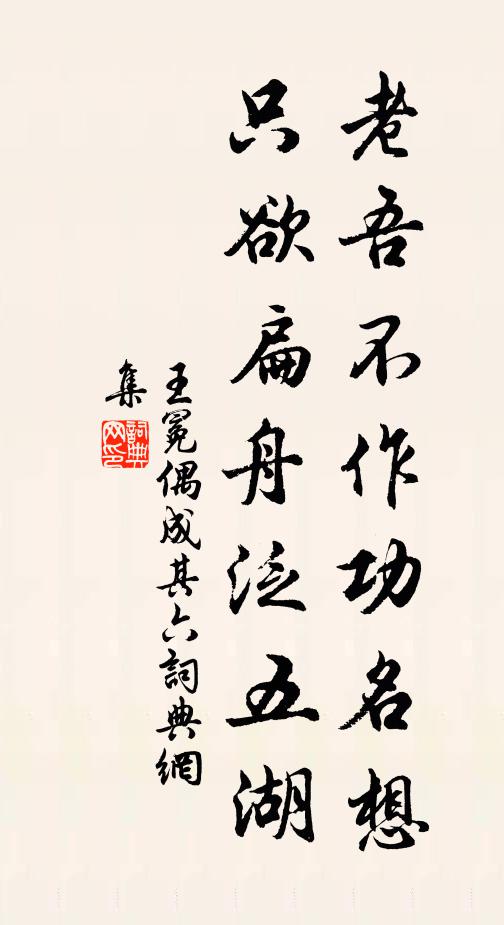 老吾不作功名想
只欲扁舟泛五湖
王冕偶成其六詞典網
集
詞典網印